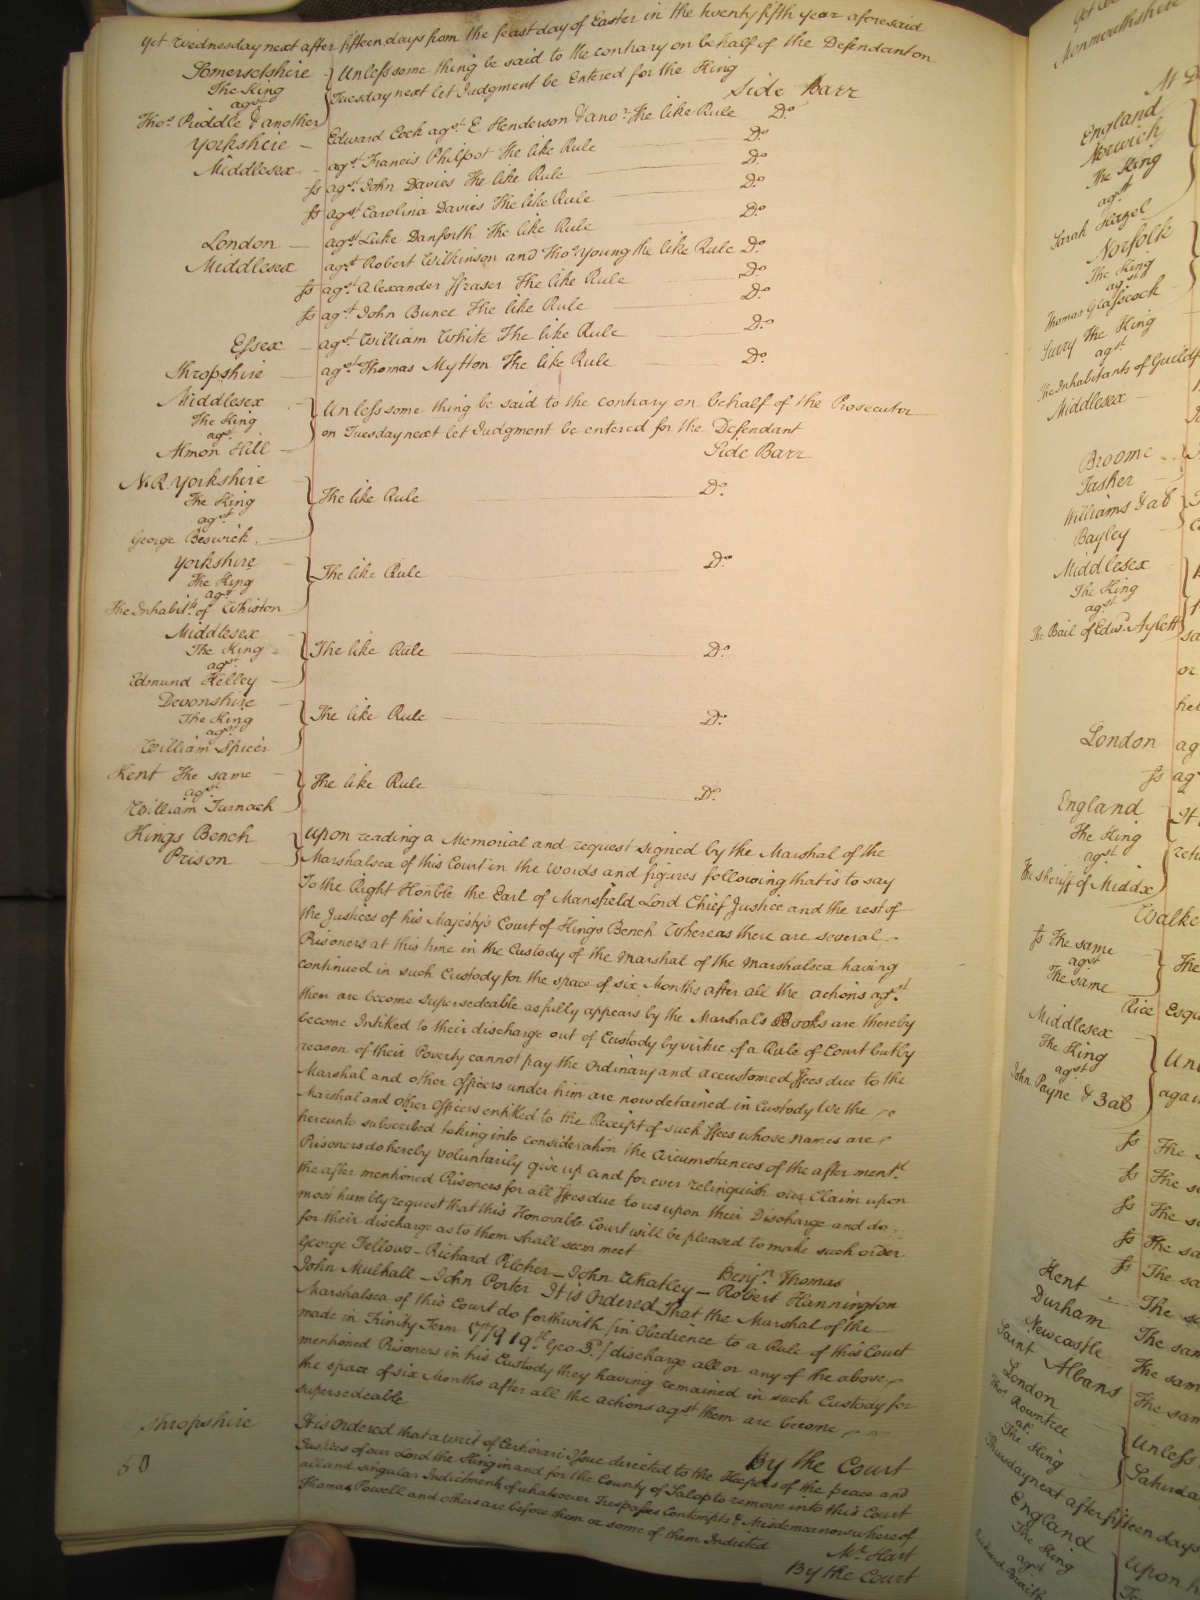 Yet Wednesday next after fifteen days from the feast day of Easter in the twenty fifth year aforesaid
Somersetshire
The King
agst
Thos Riddle & another
Unless some thing be said to the contrary on behalf of the Defendant on
Tuesday next let Judgment be Entered for the King
Side Barr
Yorkshire – Edward Cock agst E Henderson & anor The like Rule Do
Middlesex – agst Francis Philpot The like Rule Do
fs agst John Davies The like Rule Do
fs agst Carolina Davies The like Rule Do
London – agst Luke Danforth The like Rule Do
Middlesex agst Robert Wilkinson and Thos Young the like Rule Do
fs agst Alexander ffraser The like Rule Do
fs agst John Bunce The like Rule Do
Essex – agst William White The like Rule Do
Shropshire – agst Thomas Mytton The like Rule Do
Middlesex
The King
agst
Almon Hill
Unless some thing be said to the contrary on behalf of the Prosecutor
on Tuesday next let Judgment be entered for the Defendant
Side Barr
N.R. Yorkshire
The King
agst
George Beswick
The like Rule Do
Yorkshire
The King
agst
The Inhabits of Whiston
The like Rule Do
Middlesex
The King
agst
Edmund Kelley
The like Rule Do
Devonshire
The King
agst
William Spicer
The like Rule Do
Kent The same
agst
William Turnach
The like Rule Do
Kings Bench
Prison
Upon reading a Memorial and request signed by the Marshal of the
Marshalsea of this Court in the words and figures following that is to say
To the Right Honble the Earl of Mansfield Lord Chief Justice and the rest of
the Justices of his Majesty's Court of Kings Bench Whereas there are several
Prisoners at this time in the Custody of the Marshal of the Marshalsea having
continued in such Custody for the space of six Months after all the actions agst
them are become supersedeable as fully appears by the Marshals Books are thereby
become Intitled to their discharge out of Custody by virtue of a Rule of Court but by
reason of their Poverty cannot pay the Ordinary and accustomed ffees due to the
Marshal and other Officers under him are now detained in Custody We the
Marshal and other Officers entitled to the Receipt of such ffees whose names are
hereunto subscribed taking into consideration the Circumstances of the after mentd
Prisoners do hereby voluntarily give up and for ever relinquish our Claim upon
the after mentioned Prisoners for all ffees due to us upon their Discharge and do
most humbly request that this Honorable Court will be pleased to make such order
for their discharge as to them shall seem meet
Benjn Thomas
George Fellows – Richard Pilcher – John Whatley – Robert Hannington
John Mulhall – John Porter It is Ordered That the Marshal of the
Marshalsea of this Court do forthwith (in Obedience to a Rule of this Court
made in Trinity Term 1779 19th Geo 3d) discharge all or any of the above
mentioned Prisoners in his Custody they having remained in such Custody for
the space of six Months after all the actions agst them are become
supersedeable
By the Court
Shropshire
50
It is Ordered that a writ of Certiorari Issue directed to the Keepers of the peace and
Justices of our Lord the King in and for the County of Salop to remove into this Court
all and singular Indictments of whatsoever Trespasses Contempts & Misdemeanors whereof
Thomas Powell and others are before them or some of them Indicted
Mr Hart
By the Court
Monmouthshire
England
Norwich
The King
agst
Sarah Hazel
Norfolk
The King
agst
Thomas Glasscock
Surry The King
agst
The Inhabitants of
Middlesex
Broome
Tasher
Williams & al
Bayley
Middlesex
The King
agst
The Bail of Edwd Aylett
London ag
fs ag
England
The King
agst
The Sheriff of Middx
fs The same
agst
The same
The
Rice Esq
Middlesex
The King
agst
John Payne & 3 al
fs The
fs The
fs The
fs The sa
fs The sa
Kent The
Durham The sam
Newcastle The sam
Saint Albans The sam
London
Thos Rowntree
at
The King
Unless
Saturda
Thursday next after fifteen days
England
The King
agst
Upon